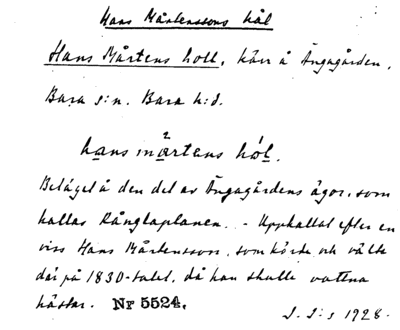 Hans Mårtenssons hål
Hans Mårtens holl, kärr å Ängagården,
Bara s:n. Bara h:d.
hans mårtens hól.
Beläget å den del av Ängagårdens ägor, som
kallas Rånglaplanen. - Uppkallat efter en
viss Hans Mårtensson, som körde och välte
där på 1830-talet, då han skulle vattna
hästar. Nr 5524.
1928.